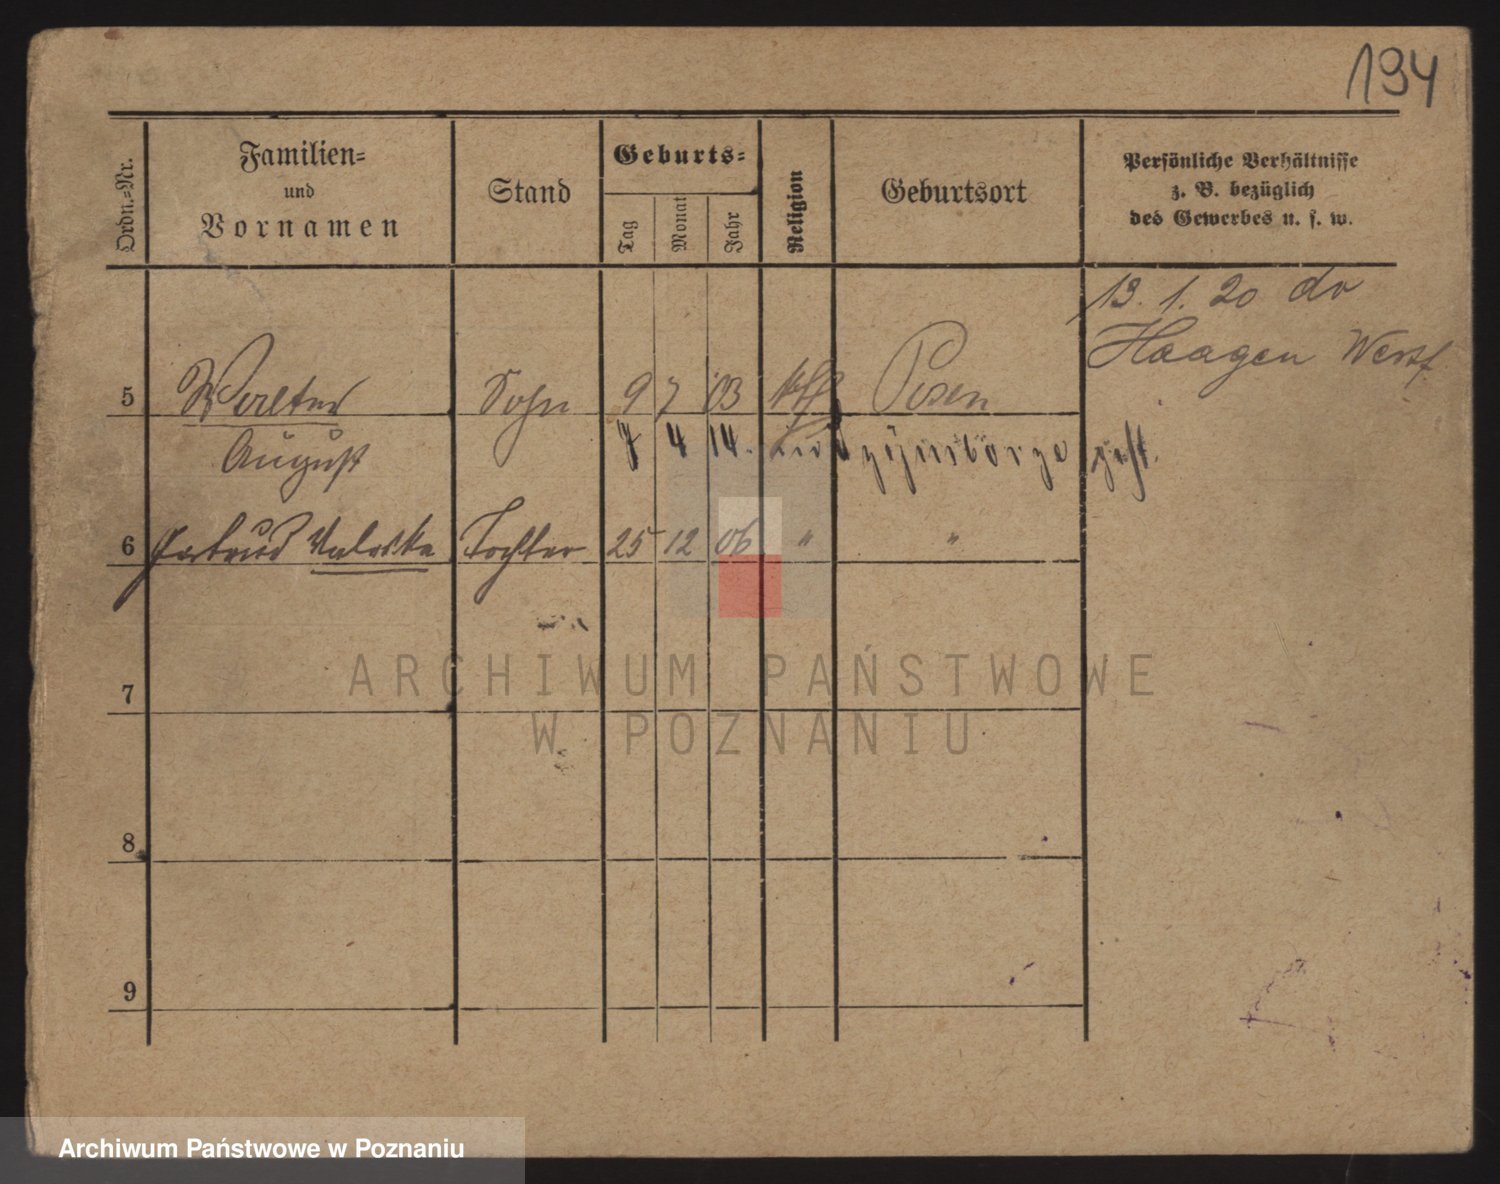 194
Ordn.=Nr.
Familien=
und
Vornamen
Stand
Geburts=
Tag
Monat
Jahr
Religion
Geburtsort
Persönliche Verhältnisse
z. B. bezüglich
des Gewerbes u. s. w.
13. 1. 20 do
Haagen Westf
5 Walter Sohn 9 7 03 Posen
August 7 4 14.
6 Gertrud Valeska Tochter 25 12 06 " "
7
8
9
ARCHIWUM PAŃSTWOWE
W POZNANIU
Archiwum Państwowe w Poznaniu